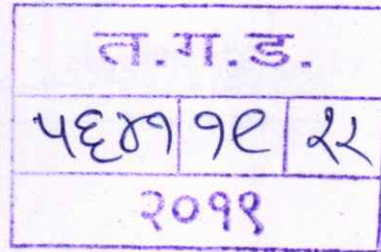 त.ग.ड.
५६४१ १९ २२
२०१९